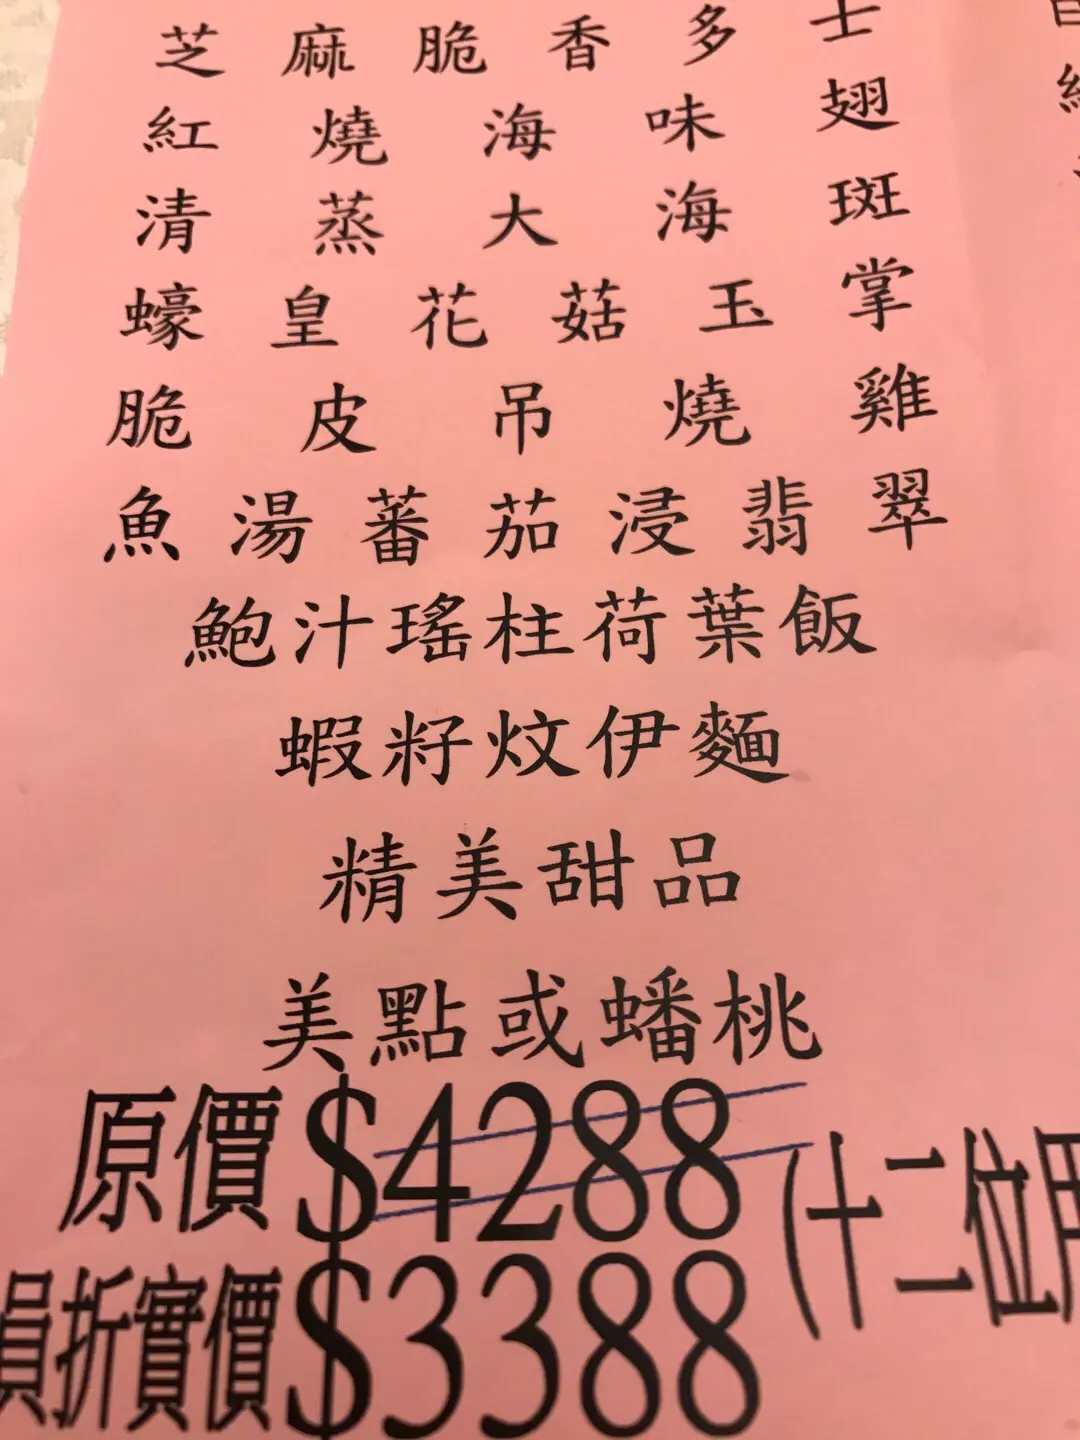 芝麻脆香多士
紅燒海味翅
清蒸大海斑
蠔皇花菇玉掌
脆皮吊燒雞
魚湯蕃茄浸翡翠
鮑汁瑤柱荷葉飯
蝦籽炆伊麵
精美甜品
美點或蟠桃
原價$4288(十二位用
員折實價$3388